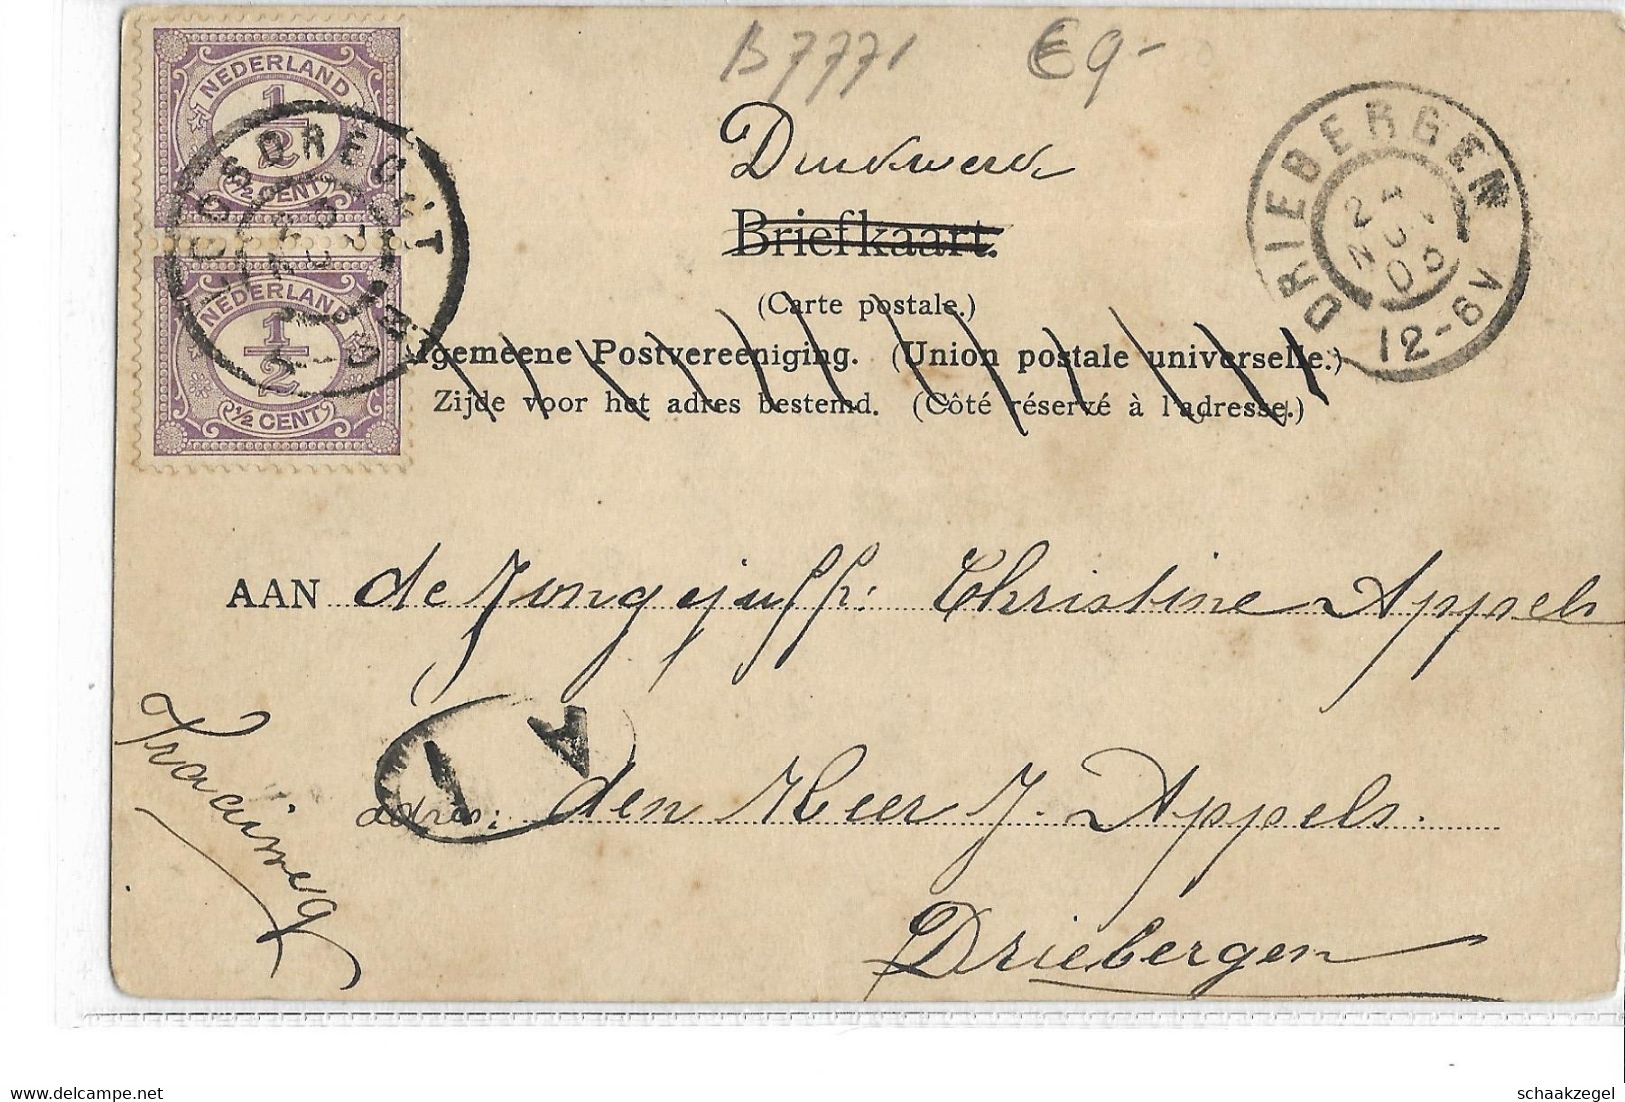 B7771 €9-
NEDERLAND
1/2
1/2 CENT
NEDERLAND
1/2
1/2 CENT
LOOSDRECHT
DRIEBERGEN
12-6V
Drukwerk
Briefkaart.
(Carte postale.)
lgemeene Postvereeniging. (Union postale universelle.)
Zijde voor het adres bestemd. (Côté réservé à l'adresse.)
AAN de Jongejuffr: Christine Appels
1 A
adres: den Heer J. Appels.
Traaiweg
Driebergen
www.delcampe.net
schaakzegel